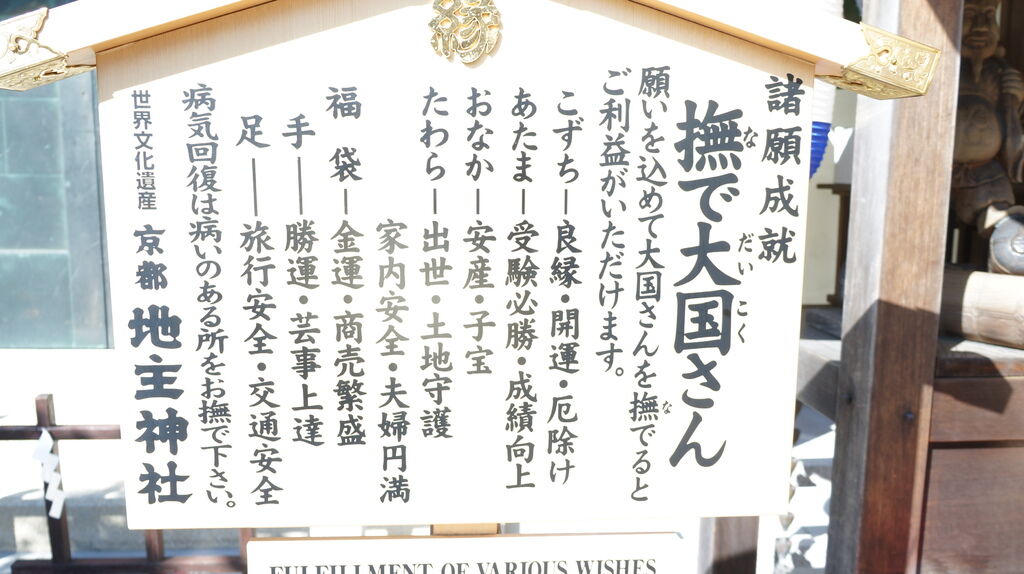 諸願成就
撫で大国さん
な だいこく
願いを込めて大国さんを撫でると
な
ご利益がいただけます。
こずち―良縁・開運・厄除け
あたま―受験必勝・成績向上
おなか―安産・子宝
たわら―出世・土地守護
家内安全・夫婦円満
福袋―金運・商売繁盛
手―勝運・芸事上達
足―旅行安全・交通安全
病気回復は病いのある所をお撫で下さい。
世界文化遺産 京都 地主神社
FULFILLMENT OF VARIOUS WISHES